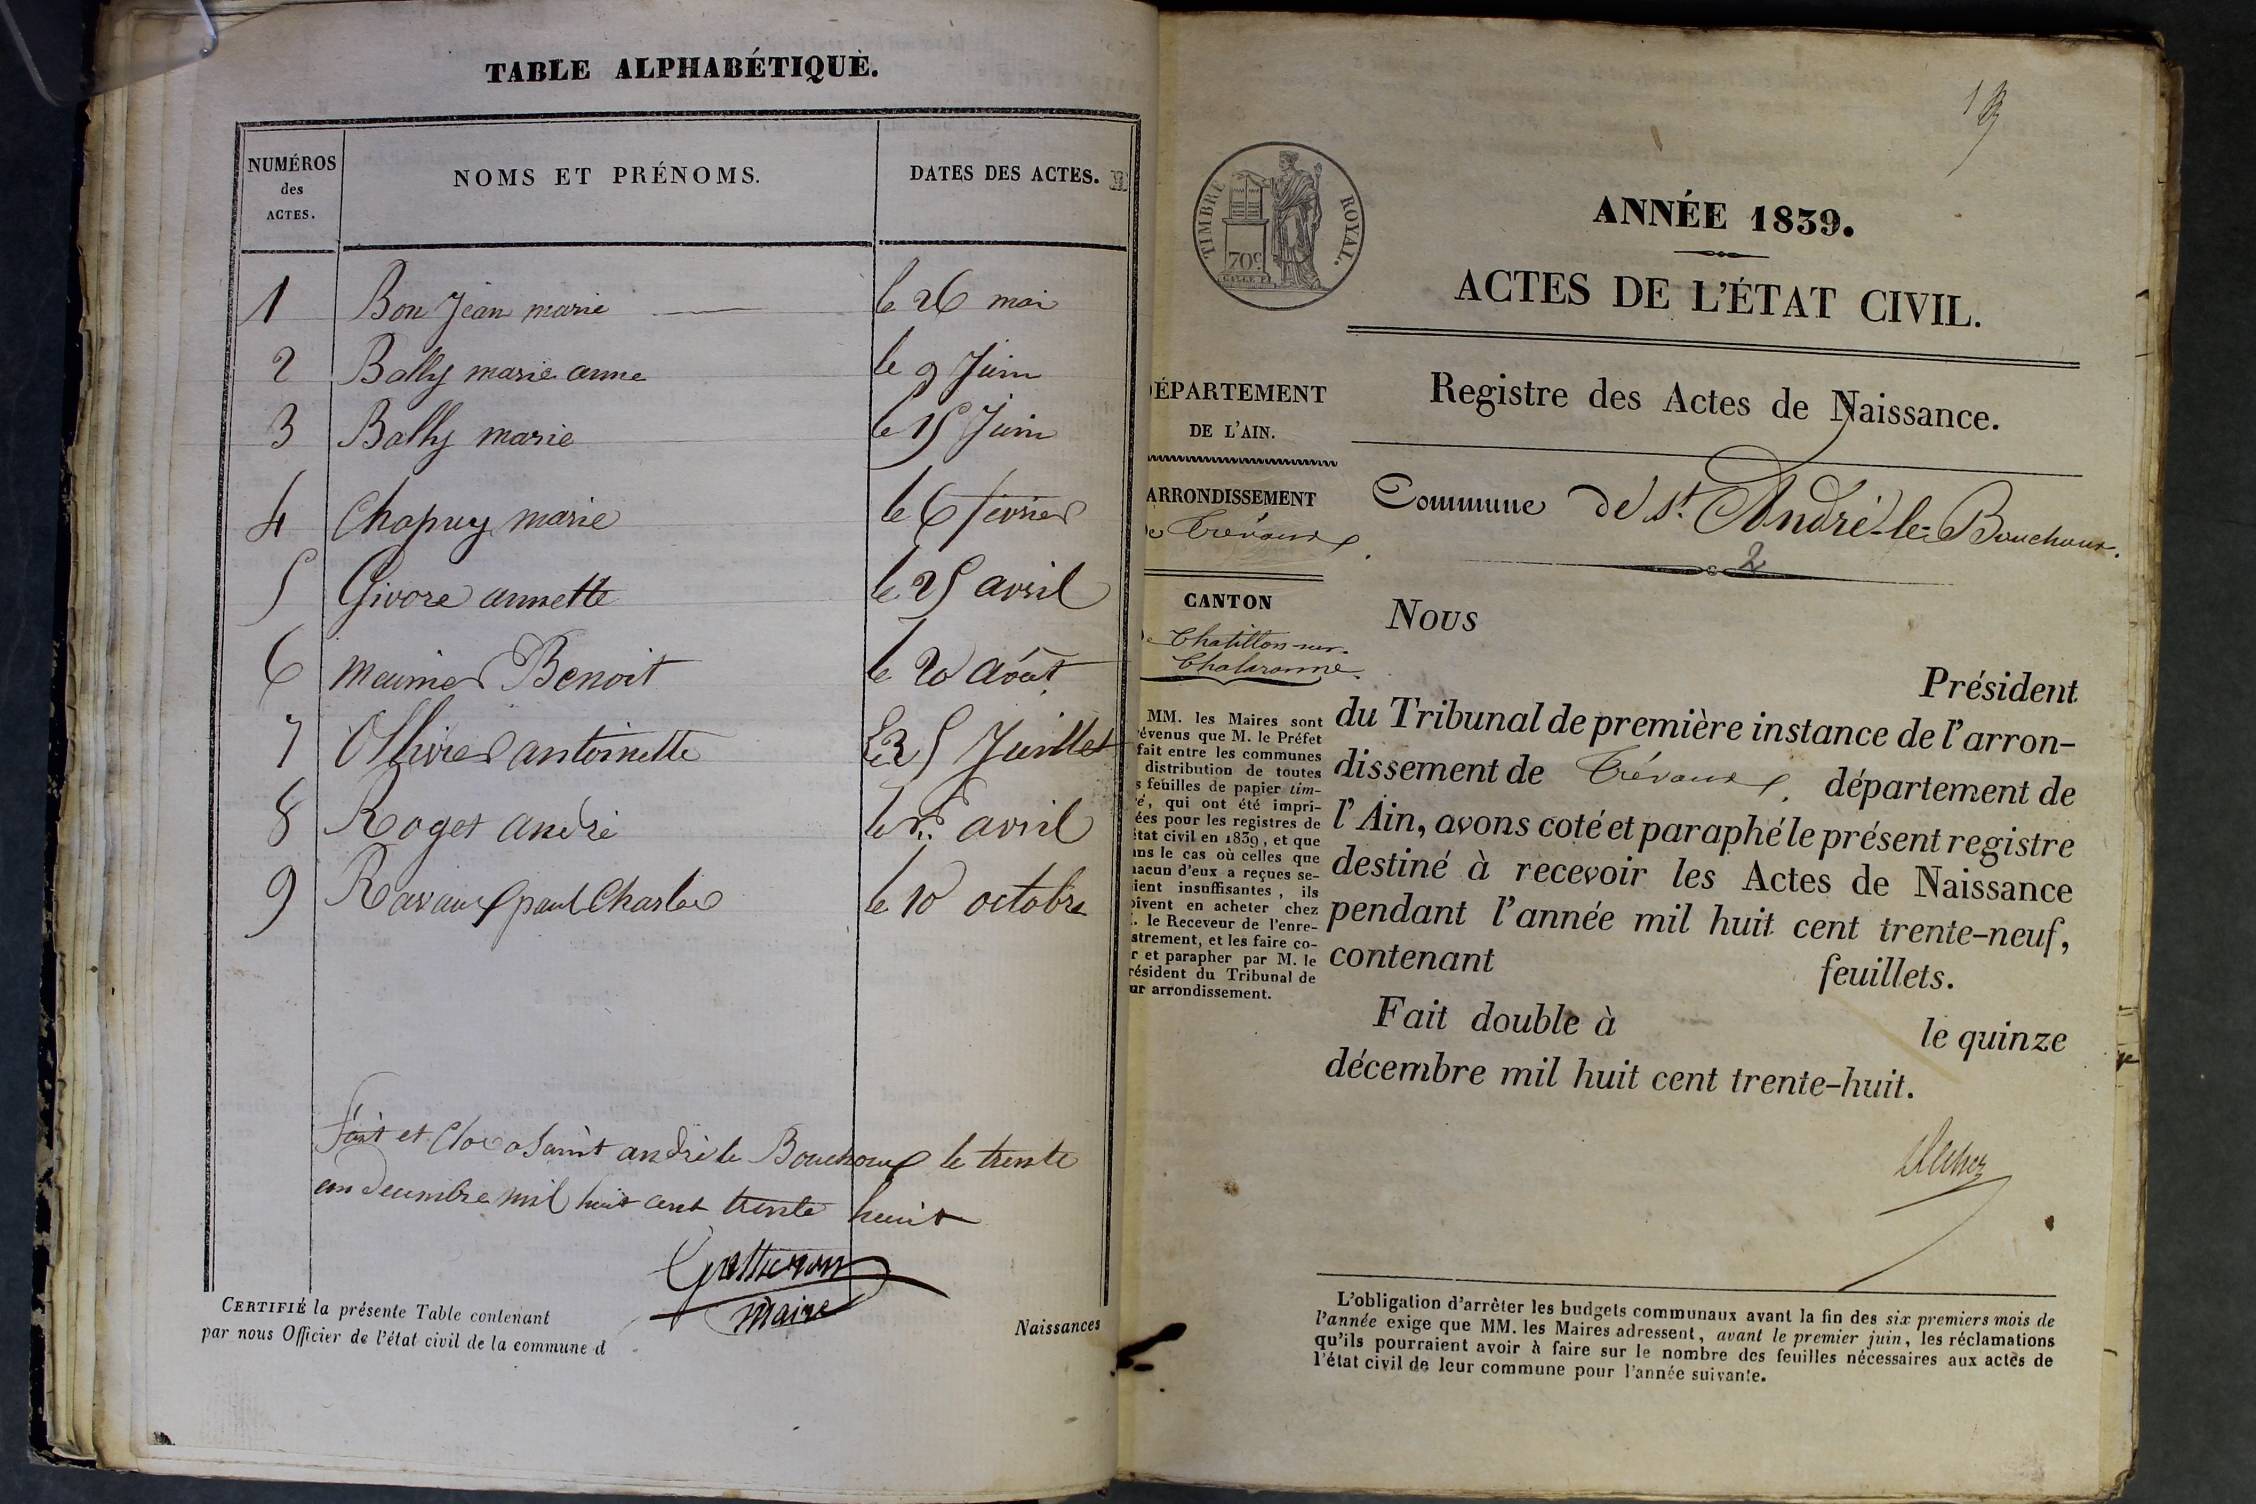 TABLE ALPHABÉTIQUE.
NUMÉROS des ACTES.
NOMS ET PRÉNOMS.
DATES DES ACTES.
1 Bon Jean marie le 26 mai
2 Bally marie anne le 9 Juin
3 Bally marie le 15 Juin
4 Chapuy marie le 6 février
5 Givore annette le 25 avril
6 meunier Benoit le 20 août
7 Ollivier antoinette Le 25 Juillet
8 Roget andré le avril
9 Ravaux paul Charles le 10 octobre
fait et Clos a Saint andré le Bouchoux le trente
un decembre mil huit cent trente huit
maire
CERTIFIÉ la présente Table contenant
par nous Officier de l'état civil de la commune d
Naissances
TIMBRE ROYAL.
70c
ANNÉE 1839.
ACTES DE L'ÉTAT CIVIL.
Registre des Actes de Naissance.
Commune de St. André-le-Bouchoux.
2
ÉPARTEMENT
DE L'AIN.
ARRONDISSEMENT
de Trévoux.
CANTON
de Chatillon-sur-
Chalaronne.
MM. les Maires sont
évenus que M. le Préfet
fait entre les communes
distribution de toutes
s feuilles de papier tim-
é, qui ont été impri-
ées pour les registres de
état civil en 1839, et que
ans le cas où celles que
hacun d'eux a reçues se-
ient insuffisantes, ils
oivent en acheter chez
. le Receveur de l'enre-
strement, et les faire co-
r et parapher par M. le
résident du Tribunal de
ur arrondissement.
Nous
Président
du Tribunal de première instance de l'arron-
dissement de Trévoux, département de
l'Ain, avons coté et paraphé le présent registre
destiné à recevoir les Actes de Naissance
pendant l'année mil huit cent trente-neuf,
contenant feuillets.
Fait double à le quinze
décembre mil huit cent trente-huit.
L'obligation d'arrêter les budgets communaux avant la fin des six premiers mois de
l'année exige que MM. les Maires adressent, avant le premier juin, les réclamations
qu'ils pourraient avoir à faire sur le nombre des feuilles nécessaires aux actes de
l'état civil de leur commune pour l'année suivante.